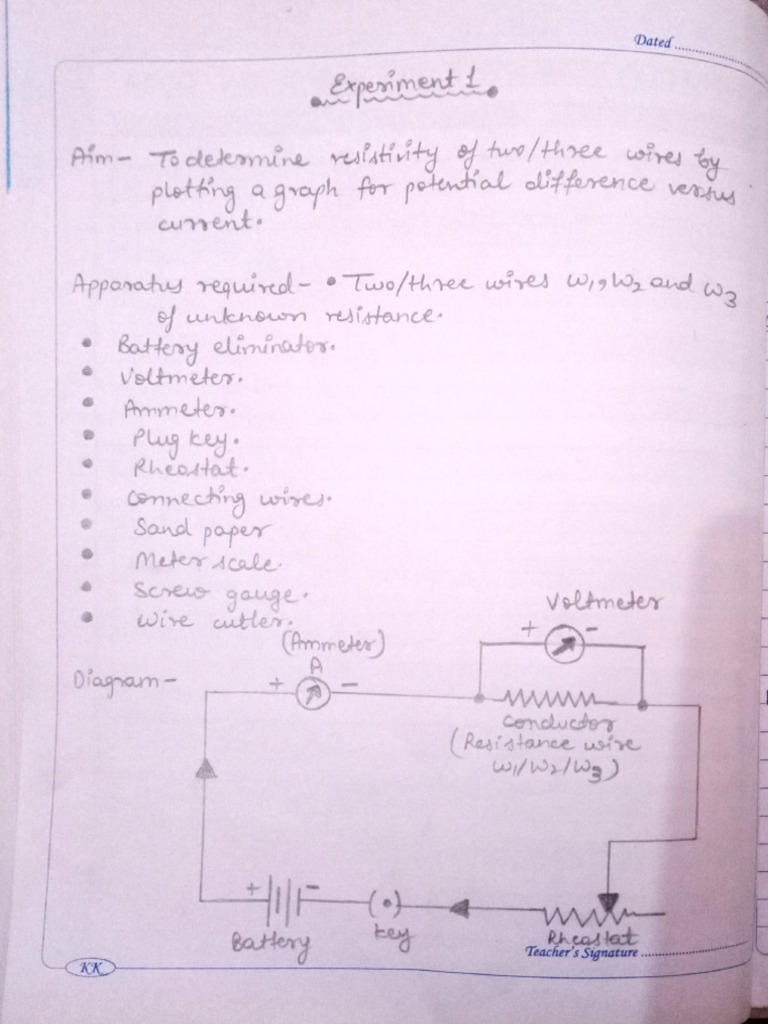 Dated
Experiment 1
Aim - To determine resistivity of two/three wires by
plotting a graph for potential difference versus
current.
Apparatus required - • Two/three wires W1, W2 and W3
of unknown resistance.
• Battery eliminator.
• Voltmeter.
• Ammeter.
• Plug key.
• Rheostat.
• Connecting wires.
• Sand paper
• Meter scale.
• Screw gauge.
• Wire cutler.
Diagram -
(Ammeter)
+ A -
Voltmeter
+ -
Conductor
(Resistance wire
W1/W2/W3)
+ -
Battery
(•)
Key
Rheostat
Teacher's Signature
KK